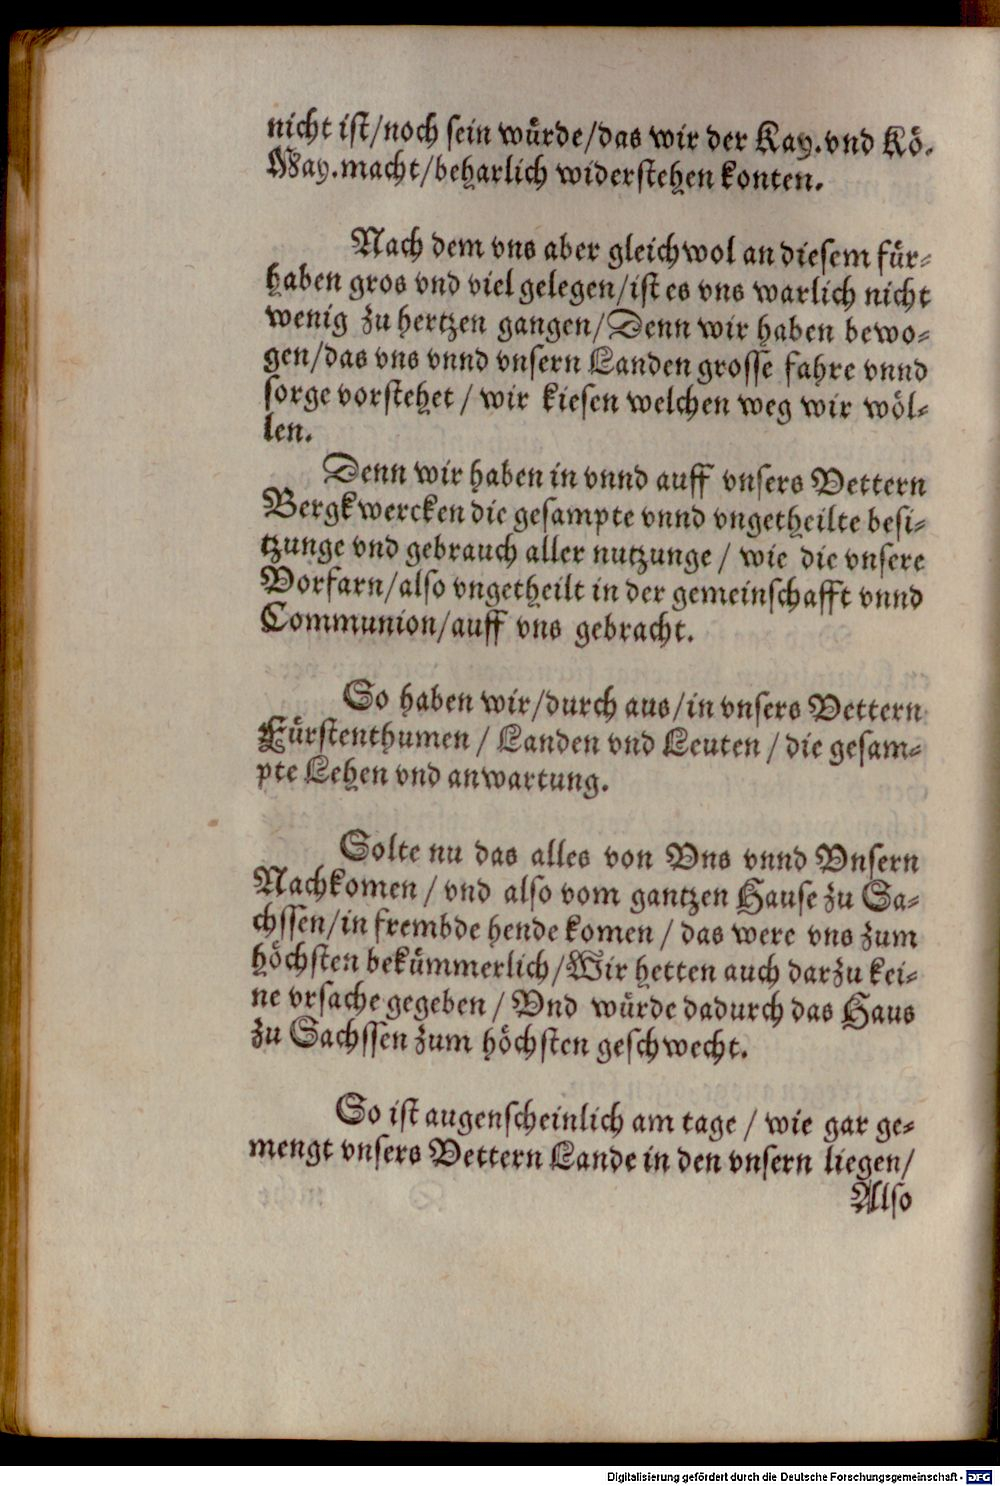 nicht ist/noch sein würde/das wir der Kay. vnd Kö.
May. macht/beharlich widerstehen konten.
Nach dem vns aber gleichwol an diesem für-
haben gros vnd viel gelegen/ist es vns warlich nicht
wenig zu hertzen gangen/Denn wir haben bewo-
gen/das vns vnnd vnsern Landen grosse fahre vnnd
sorge vorstehet / wir kiesen welchen weg wir wöl-
len.
Denn wir haben in vnnd auff vnsers Vettern
Bergkwercken die gesampte vnnd vngetheilte besi-
tzunge vnd gebrauch aller nutzunge / wie die vnsere
Vorfarn/also vngetheilt in der gemeinschafft vnnd
Communion/auff vns gebracht.
So haben wir/durch aus/in vnsers Vettern
Fürstenthumen / Landen vnd Leuten / die gesam-
pte Lehen vnd anwartung.
Solte nu das alles von Vns vnnd Vnsern
Nachkomen / vnd also vom gantzen Hause zu Sa-
chssen/in frembde hende komen / das were vns zum
höchsten bekümmerlich/Wir hetten auch darzu kei-
ne vrsache gegeben / Vnd würde dadurch das Haus
zu Sachssen zum höchsten geschwecht.
So ist augenscheinlich am tage / wie gar ge-
mengt vnsers Vettern Lande in den vnsern liegen/
Also
Digitalisierung gefördert durch die Deutsche Forschungsgemeinschaft - DFG